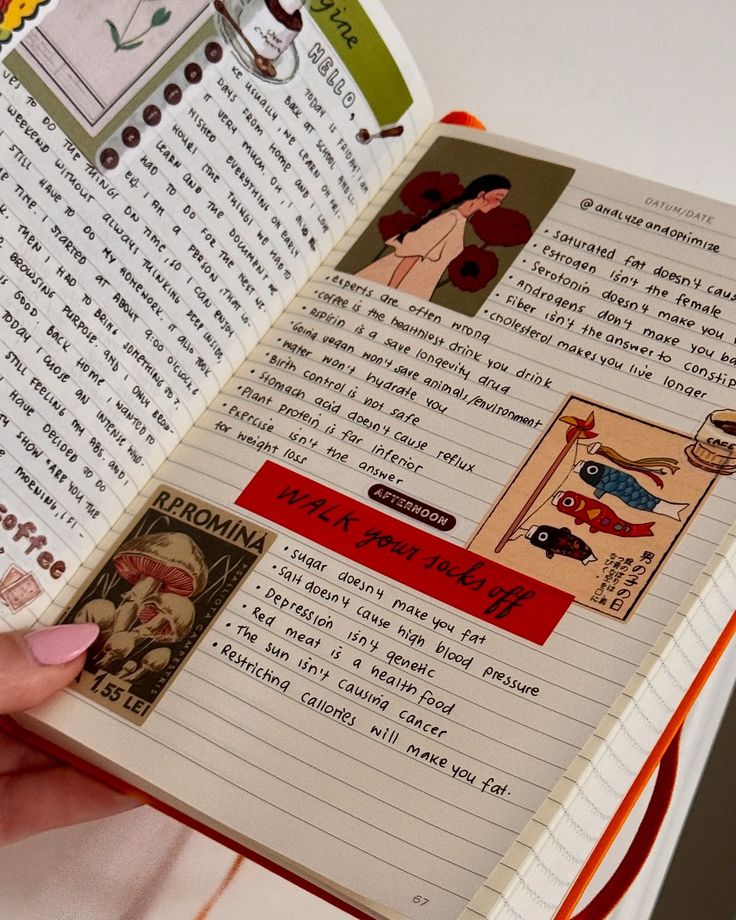 gine
HELLO
TODAY IS FRIDAY! I AM
BACK AT SCHOOL AND, LI-
KE USUALLY, WE LEARN ON FRI
DAYS FROM HOME AND I LOVE
IT VERY MUCH. OH, I ALSO
NISHED EVERYTHING ON EARLY
HOUR! (THE THINGS WE HAD TO
LEARN AND THE DOCUMENT WE
HAD TO DO FOR THE REST OF
I AM A PERSON THAT LO-
VES TO DO THE THINGS ON TIME, SO I CAN ENJOY
WEEKEND WITHOUT ALWAYS THINKING DEEP INSIDE
I STILL HAVE TO DO MY HOMEWORK. IT ALSO TOOK
TIME. I STARTED AT ABOUT 9:00 O'CLOCK
THEN I HAD TO BRING SOMETHING
BROWSING PURPOSE, AND I ONLY BROW-
GOOD. BACK HOME I WANTED TO
TODAY I CHOSE AN INTENSE
STILL FEELING MY ABS, AND I
HAVE DECIDED TO DO
SHOW "ARE YOU THE
MORNING, IF I
coffee
DATUM/DATE
@analyzeandoptimize
• Saturated fat doesn't caus
• estrogen isn't the female
• Serotonin doesn't make you
• androgens don't make you ba
• Fiber isn't the answer to constip
• cholesterol makes you live longer
• experts are often wrong
• coffee is the healthiest drink you drink
• aspirin is a save longevity drug
• Going vegan won't save animals/environment
• water won't hydrate you
• Birth control is not safe
• Stomach acid doesn't cause reflux
• Plant protein is far inferior
• Exercise isn't the answer
for weight loss
CAFE
AFTERNOON
WALK your socks off
男の子の日
R.P.ROMINA
PSALLIOTA CAMPESTRIS
1,55 LEI
• sugar doesn't make you fat
• Salt doesn't cause high blood pressure
• Depression isn't genetic
• Red meat is a health food
• The sun isn't causing cancer
• Restricting callories will make you fat.
67